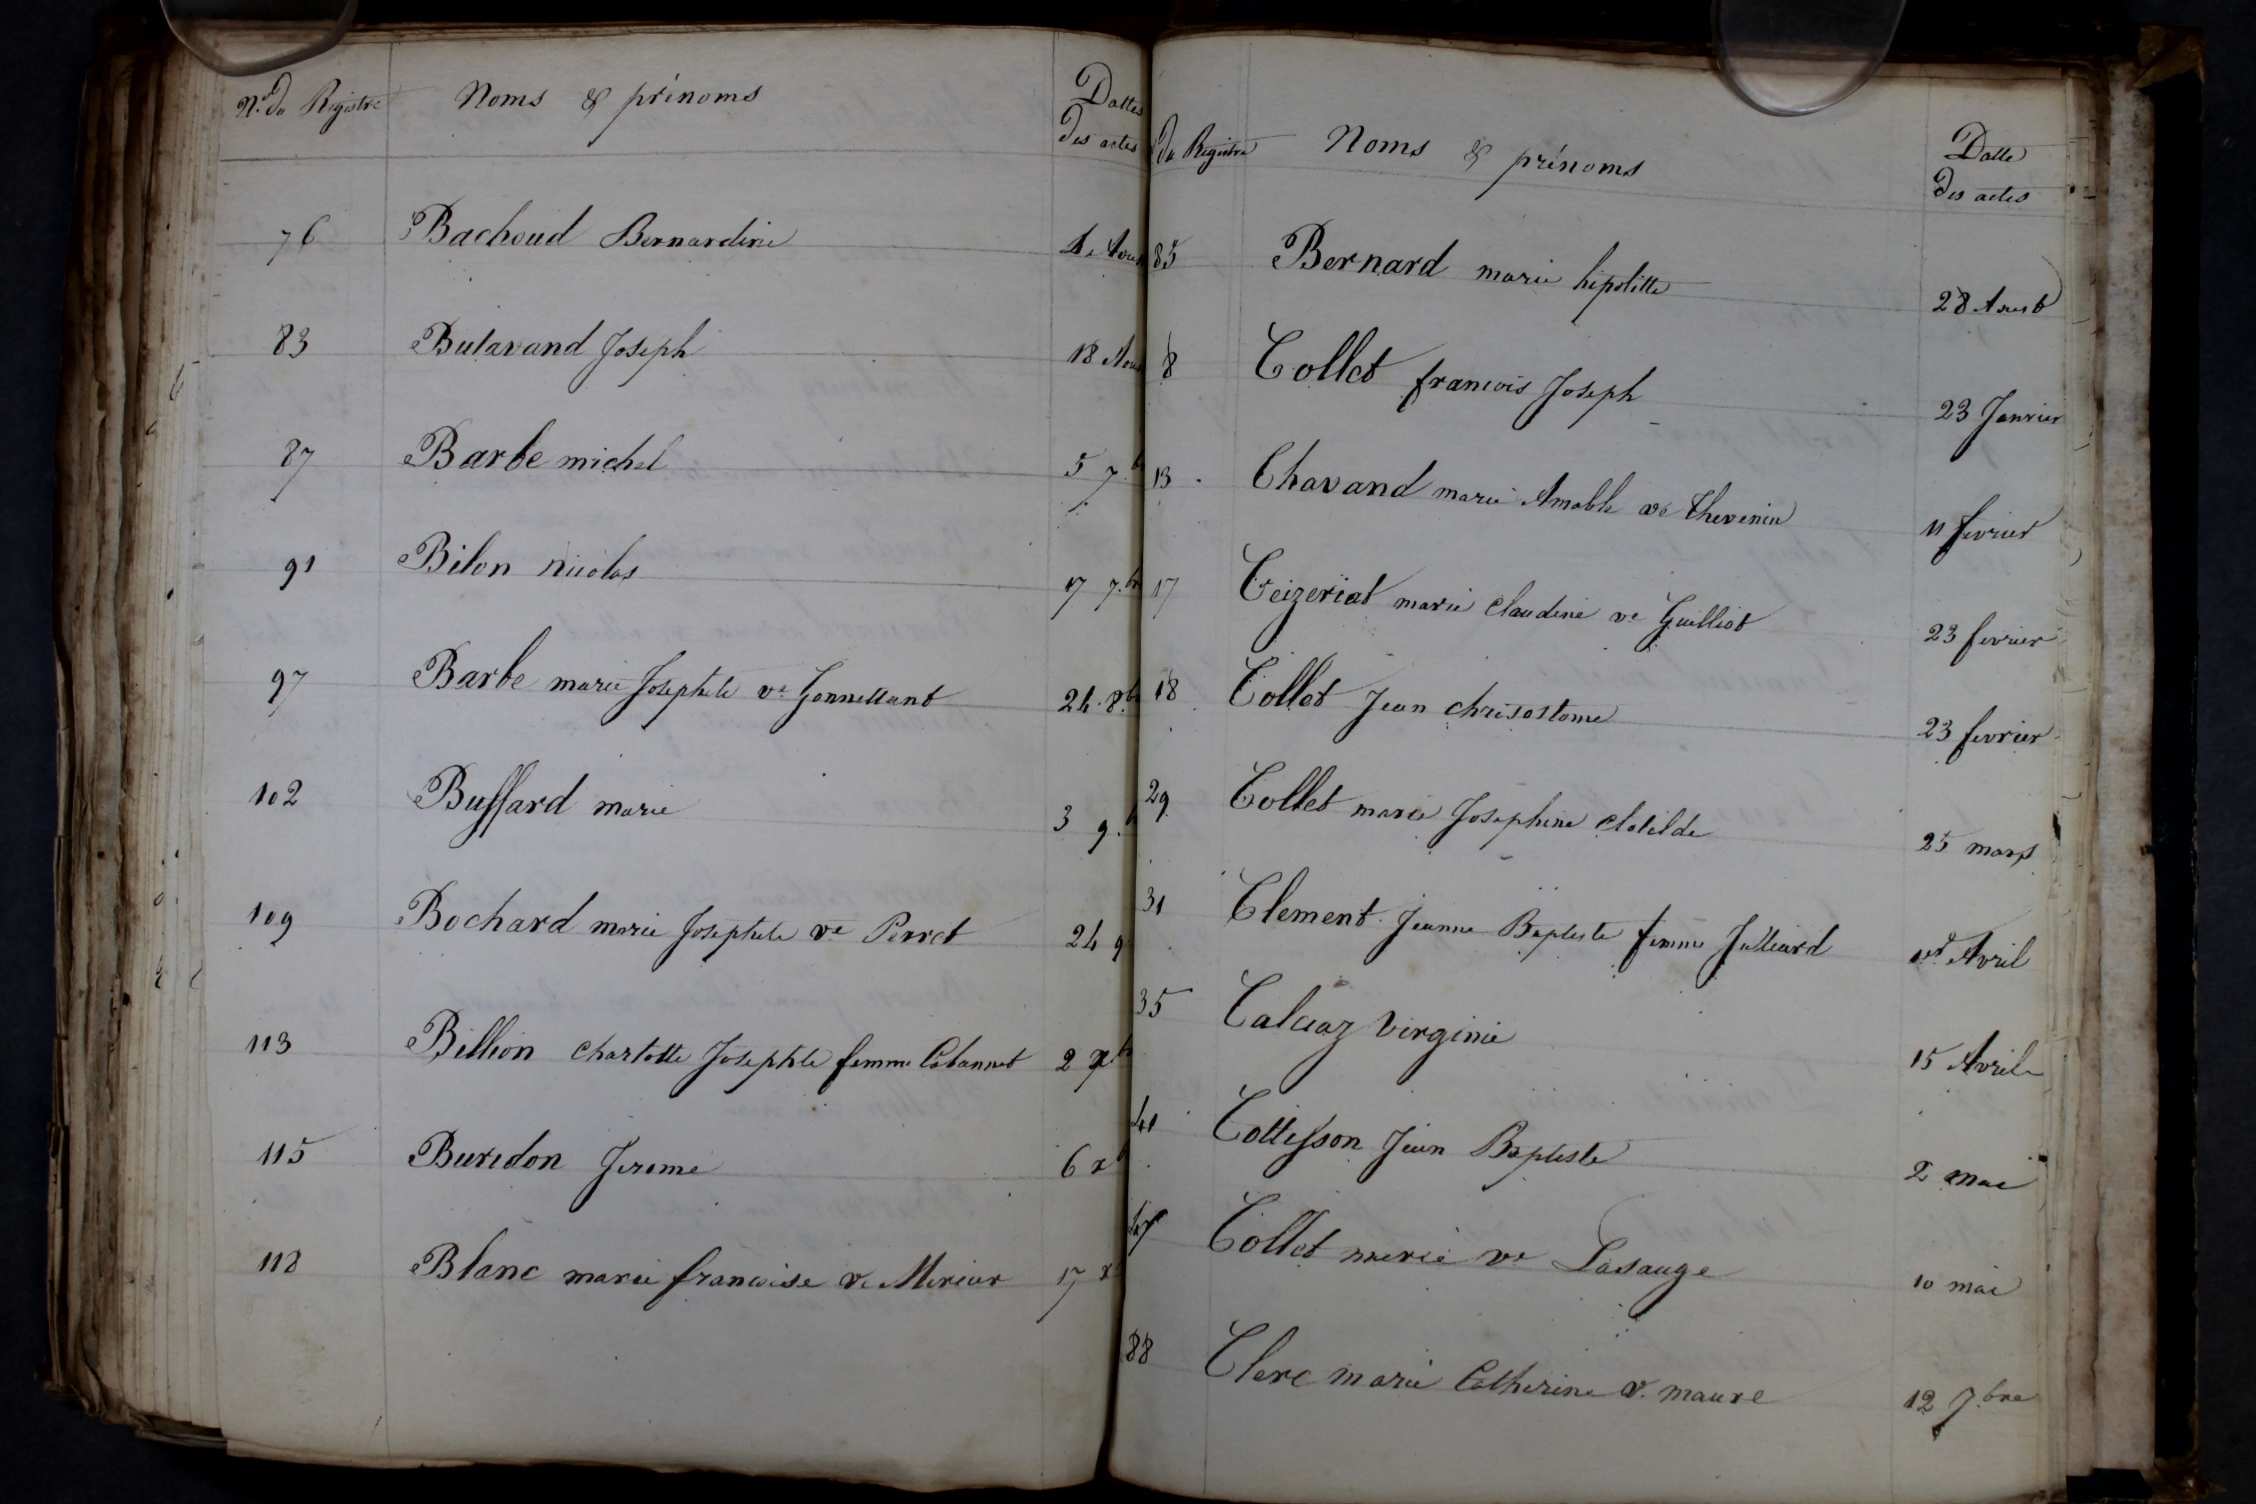 N.º du Registre Noms & prénoms Dattes
des actes
76 Bachoud Bernardine 4 Aout
83 Butavand Joseph 18 Aout
87 Barbe michel 5 7.b
91 Bilon nicolas 17 7.br
97 Barbe marie Josephte ve Gonnettant 24 8.br
102 Buffard marie 3 9.b
109 Bochard marie Josephte ve Perret 24 9
113 Billion charlotte Josephte femme Cabannet 2 xb
115 Buredon Jerome 6 xb
118 Blanc marie francoise ve 17 x
du Registre Noms & prénoms Datte
des actes
85 Bernard marie hipolitte 28 Aout
8 Collet francois Joseph 23 Janvier
13 Chavand marie Amable ve thevenin 11 fevrier
17 Ceizeriat marie claudine ve Guilliot 23 fevrier
18 Collet Jean chrisostome 23 fevrier
29 Collet marie Josephine clotilde 25 mars
31 Clement Jeanne Baptiste femme Julliard 1er Avril
35 Calciaz Virginie 15 Avril
41 Cottisson Jean Baptiste 2 mai
47 Collet marie ve Lasauge 10 mai
88 Clerc marie Catherine v. maure 12 7.bre